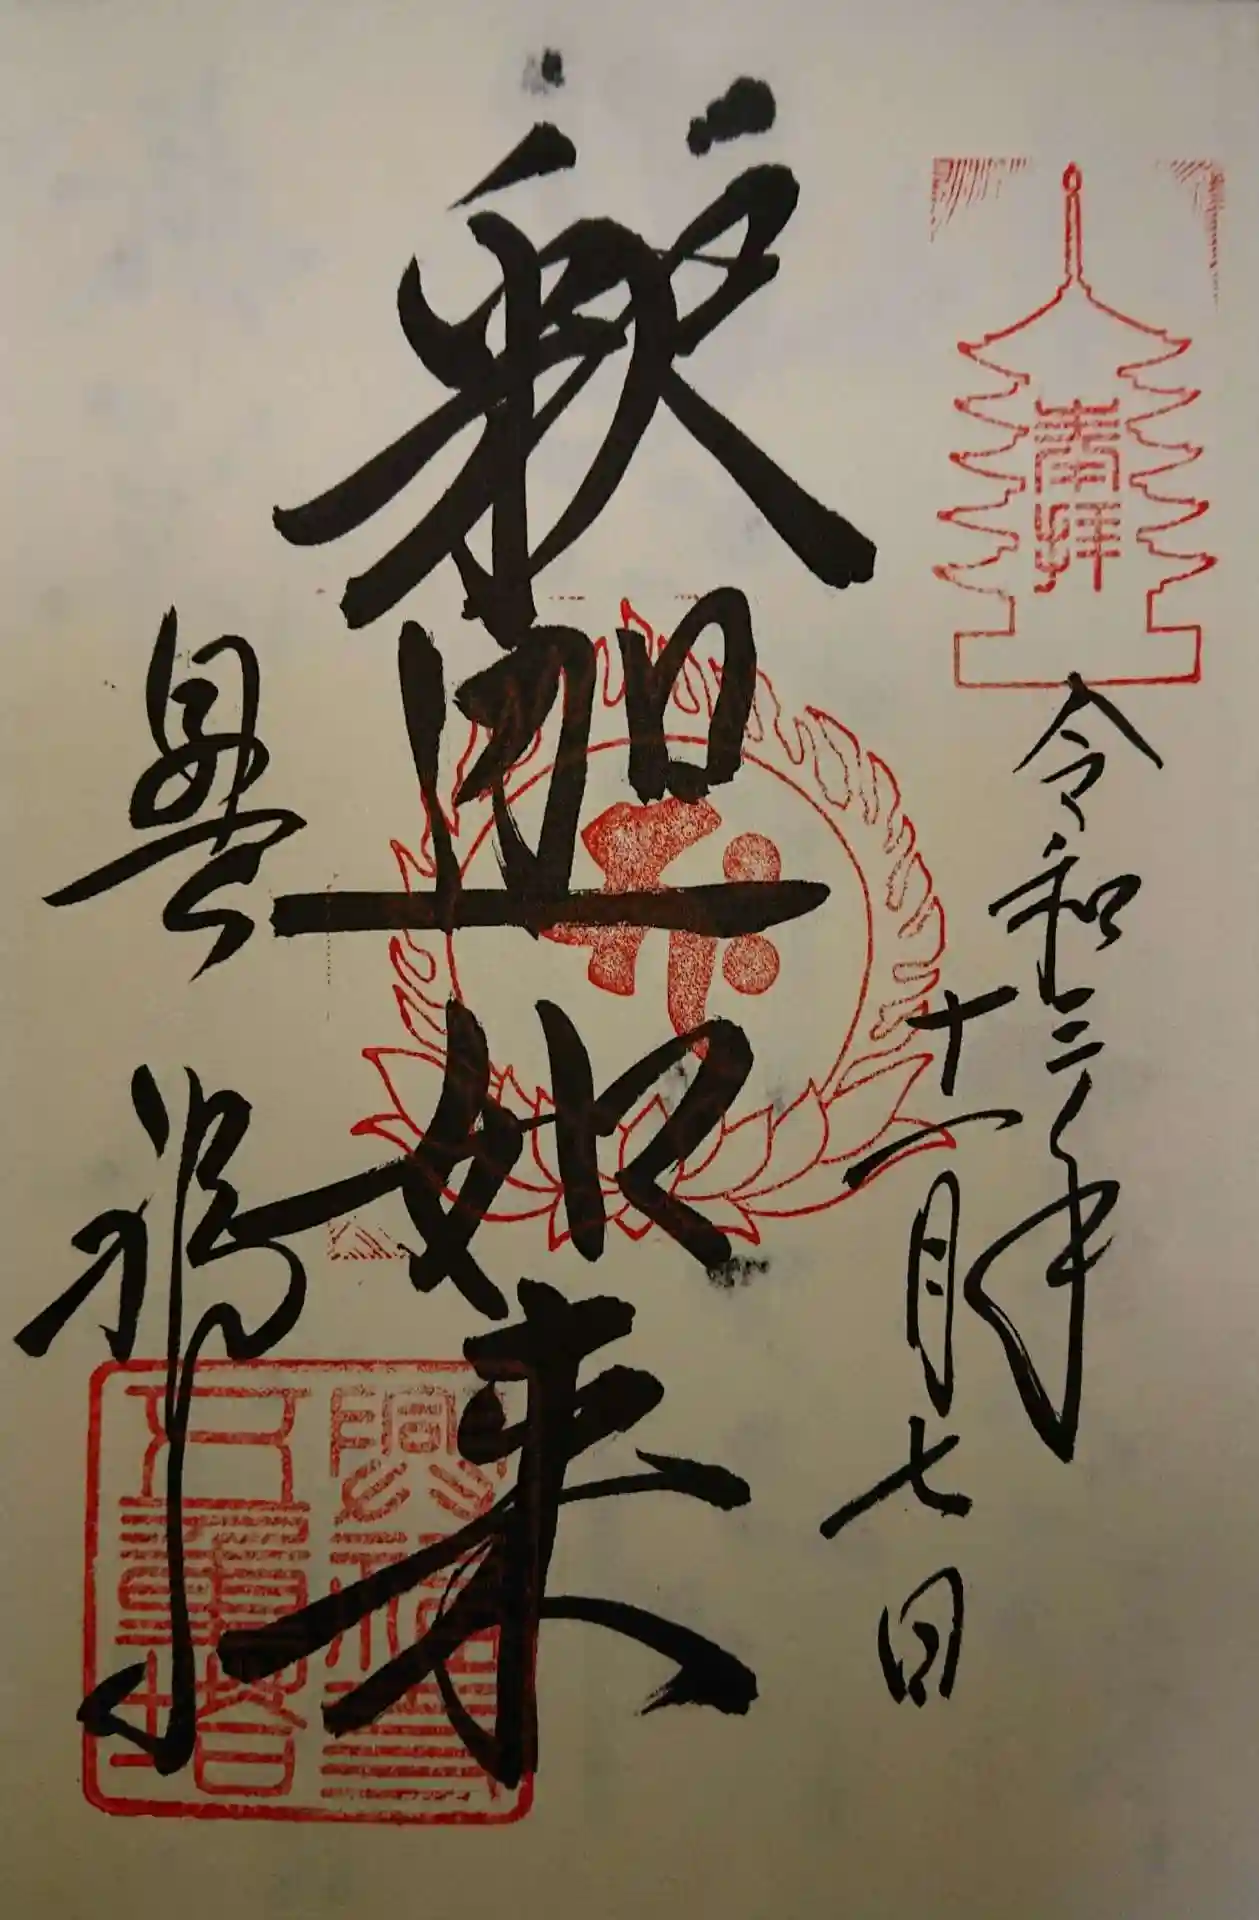 奉拝
令和三年
十一月七日
釈迦如来
興福寺
興福寺
五重塔